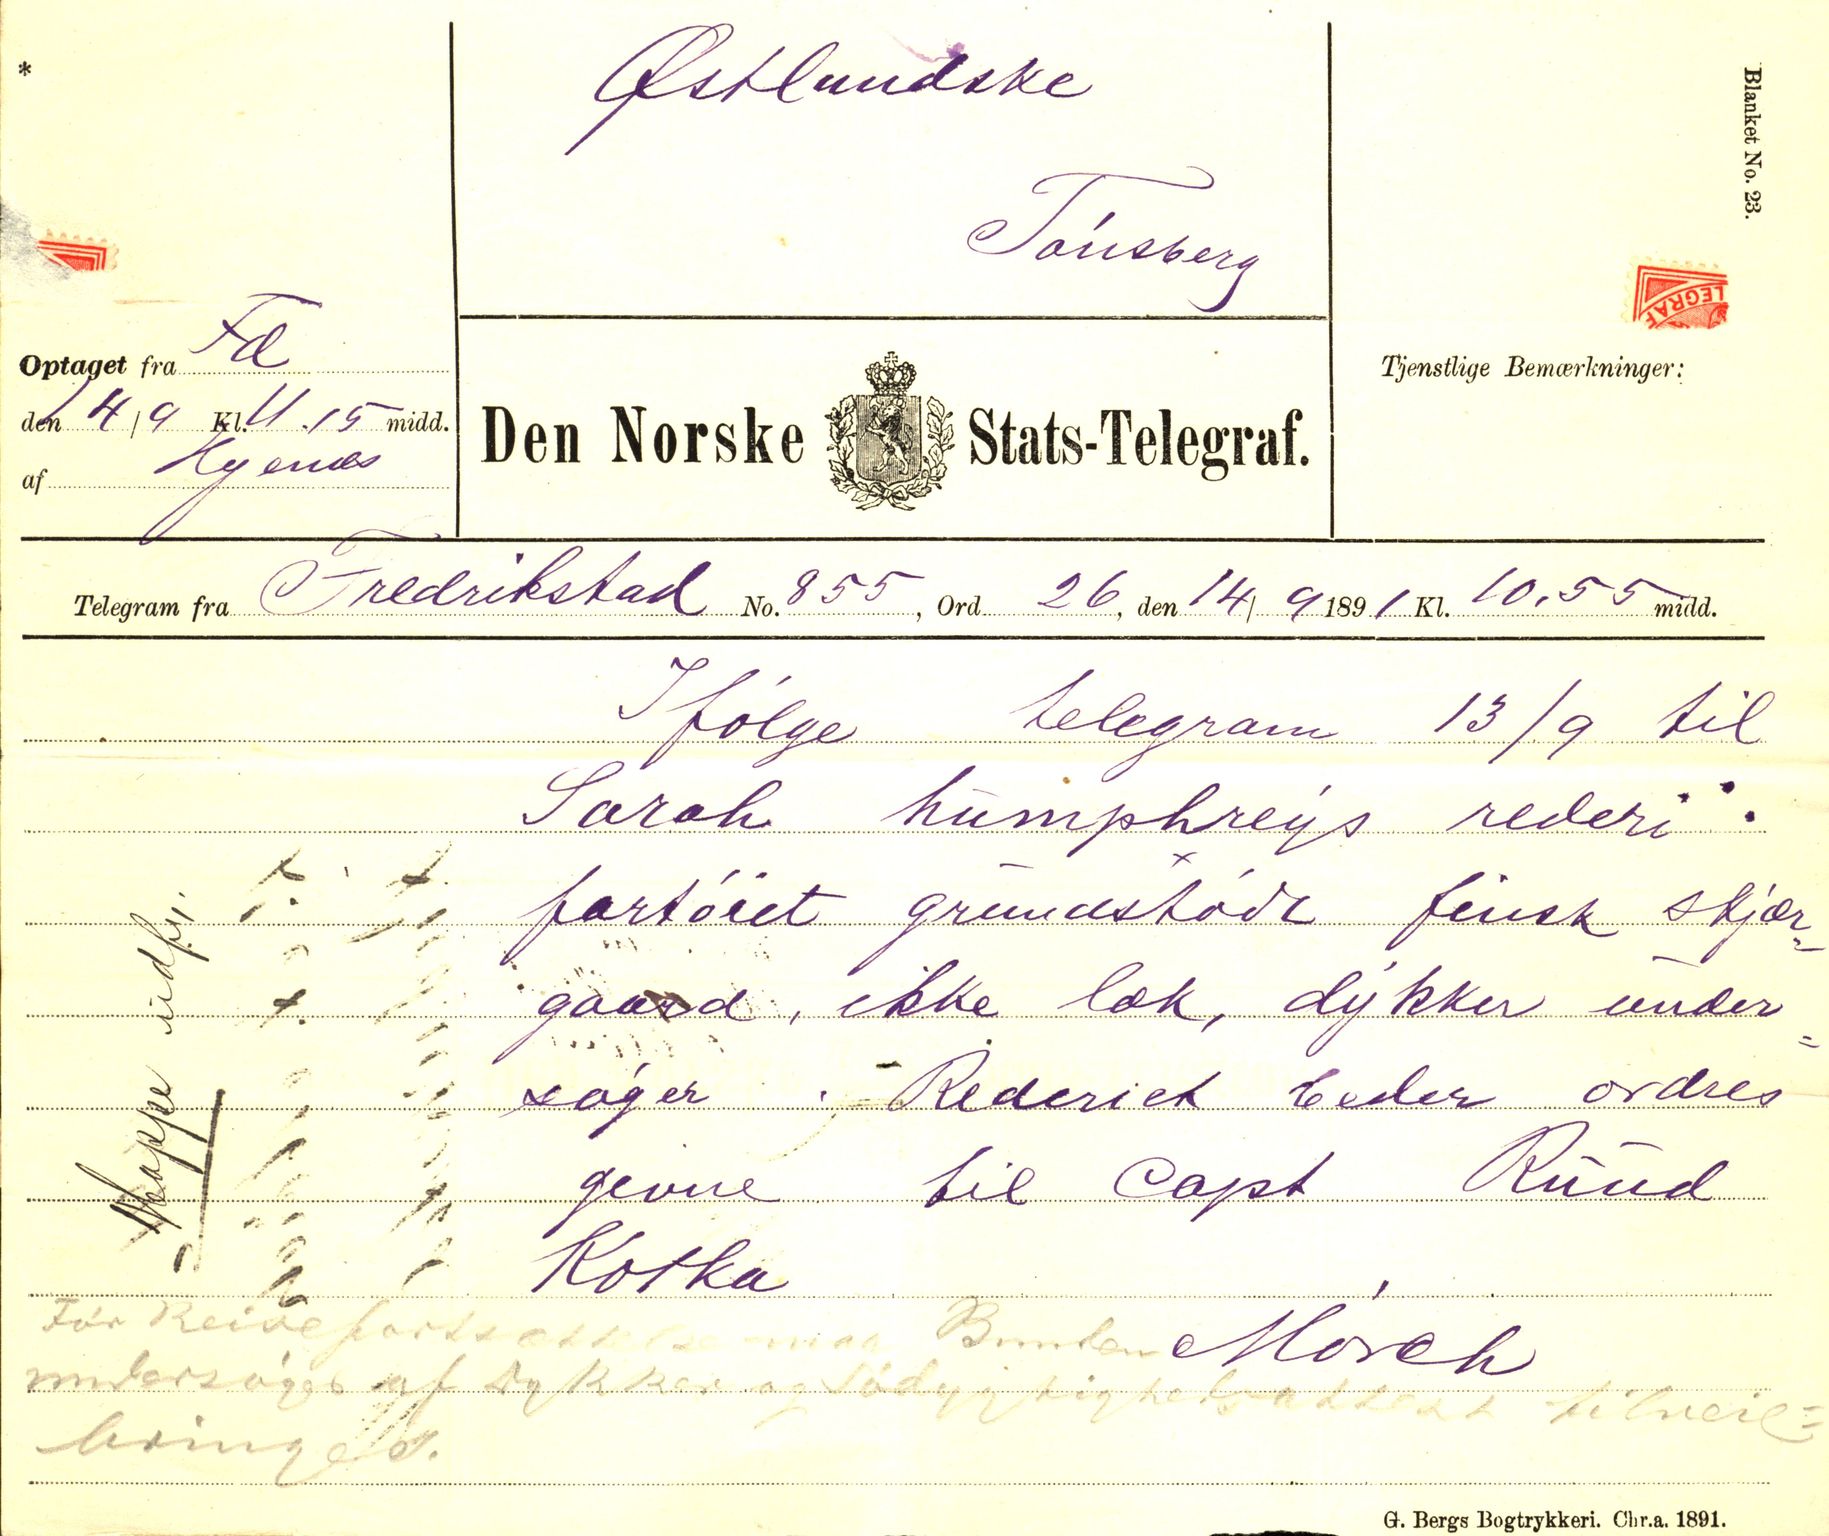 *
Østlandske
Tönsberg
Blanket No. 23.
LEGRAF
Optaget fra Fd
den 14/9 Kl. 11.15 midd.
af Hyenæs
Den Norske Stats-Telegraf.
Tjenstlige Bemærkninger:
Telegram fra Fredrikstad No. 855, Ord 26, den 14/9 1891 Kl. 10.55 midd.
Ifölge telegram 13/9 til
Sarah humphreys rederi:
fartöiet grundstödt finsk skjær-
gaard, ikke læk, dykker under=
söger. Rederiet beder ordres
givne til Capt Ruud
Kotka
Mörch
Mappe udfr.
Før Reisefortsættelse maa Bunden
undersøges af Dykker og Södygtighetsattest tilveie=
bringes.
G. Bergs Bogtrykkeri. Chr.a. 1891.